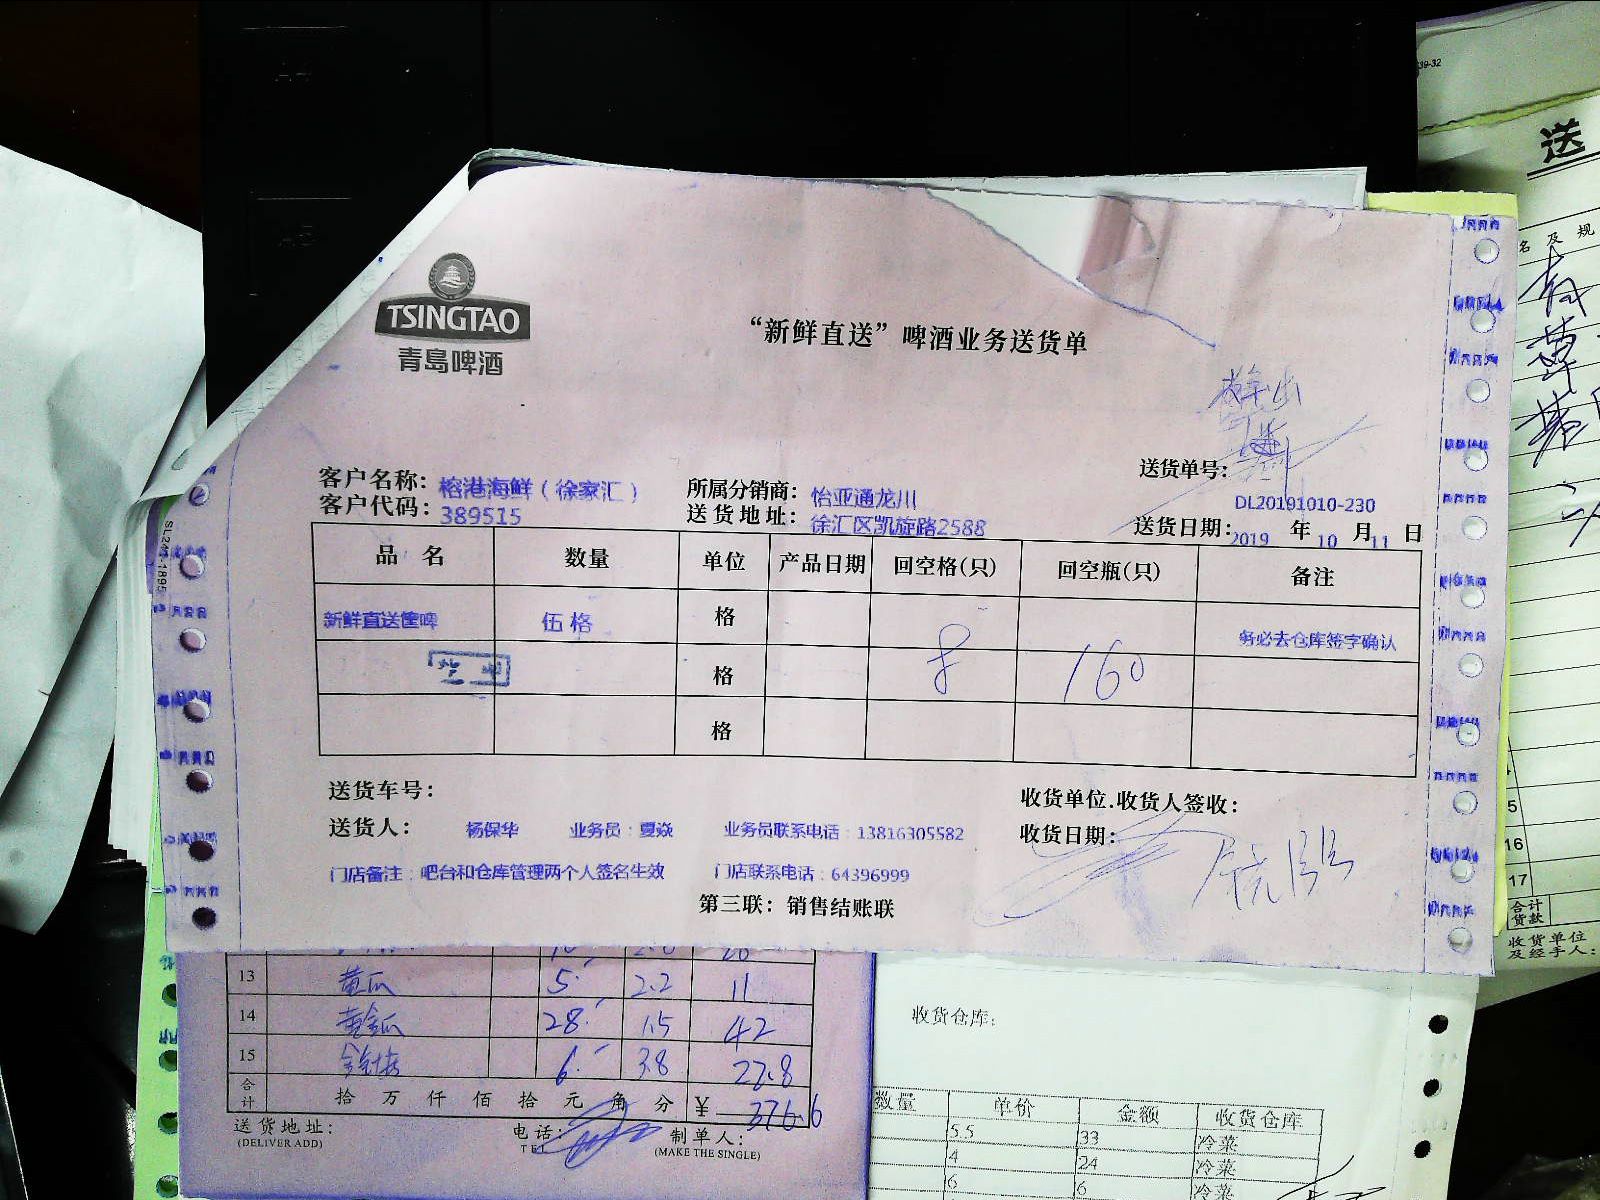 TSINGTAO
青島啤酒
“新鲜直送”啤酒业务送货单
客户名称：榕港海鲜（徐家汇）
客户代码：389515
所属分销商：怡亚通龙川
送货地址：徐汇区凯旋路2588
送货单号：
DL20191010-230
送货日期：2019 年 10 月 11 日
品名 数量 单位 产品日期 回空格(只) 回空瓶(只) 备注
新鲜直送筐啤 伍格 格 务必去仓库签字确认
格 8 160
格
送货车号：
收货单位.收货人签收：
送货人： 杨保华 业务员：夏焱 业务员联系电话：13816305582
收货日期：
门店备注：吧台和仓库管理两个人签名生效 门店联系电话：64396999
第三联：销售结账联
13 黄瓜 5 2.2 11
14 黄金瓜 28 1.5 42
15 6 3.8 22.8
合计 拾 万 仟 佰 拾 元 角 分 ¥ 376.6
送货地址：
(DELIVER ADD)
电话：
TEL
制单人：
(MAKE THE SINGLE)
收货仓库：
数量 单价 金额 收货仓库
5.5 33 冷菜
4 24 冷菜
6 6 冷菜
39-32
送
名及规
16
17
合计
货款
收货单位
及经手人：